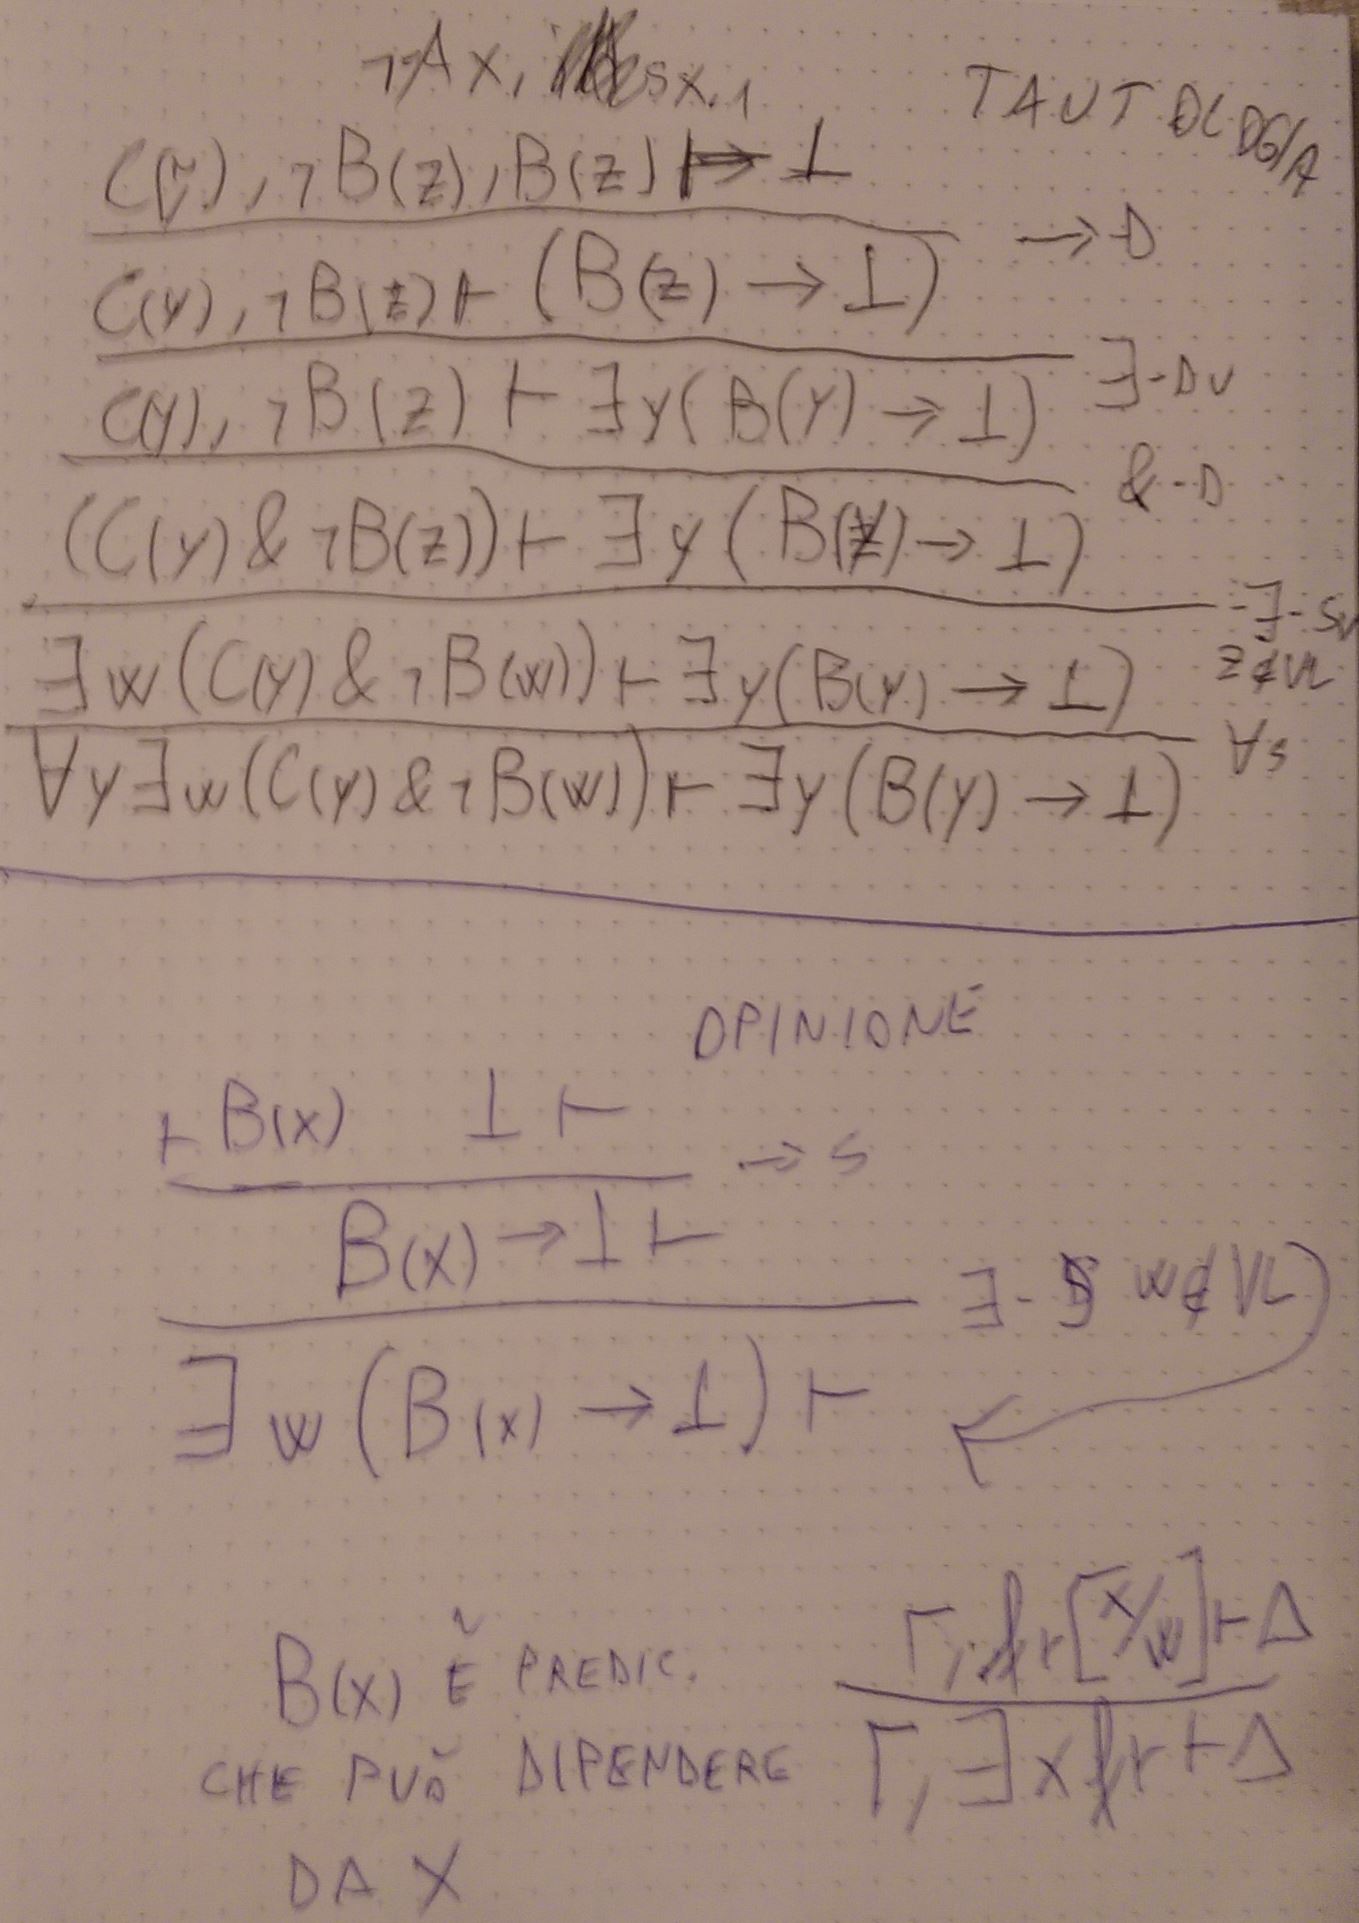 ¬Ax, sx.1
TAUTOLOGIA
C(y), ¬B(z), B(z) ⊢ ⊥
→D
C(y), ¬B(z) ⊢ (B(z) → ⊥)
∃-DV
C(y), ¬B(z) ⊢ ∃y(B(y) → ⊥)
&-D
(C(y) & ¬B(z)) ⊢ ∃y(B(y) → ⊥)
∃-SV
z∉VL
∃w(C(y) & ¬B(w)) ⊢ ∃y(B(y) → ⊥)
∀S
∀y∃w(C(y) & ¬B(w)) ⊢ ∃y(B(y) → ⊥)
OPINIONE
⊢ B(x) ⊥ ⊢
→S
B(x) → ⊥ ⊢
∃-S w∉VL
∃w(B(x) → ⊥) ⊢
Γ, fr[x/w] ⊢ Δ
B(x) È PREDIC.
Γ, ∃x fr ⊢ Δ
CHE PUÒ DIPENDERE
DA X